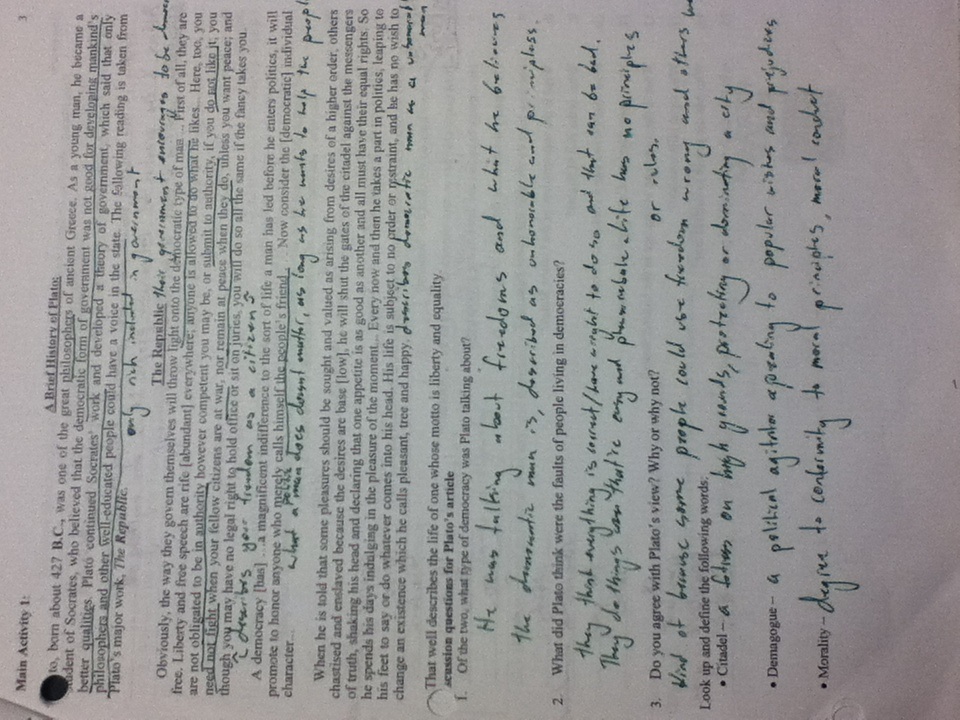 Main Activity 1:
3
A Brief History of Plato:
to, born about 427 B.C., was one of the great philosophers of ancient Greece. As a young man, he became a
student of Socrates, who believed that the democratic form of government was not good for developing mankind's
better qualities. Plato continued Socrates' work and developed a theory of government, which said that only
philosophers and other well-educated people could have a voice in the state. The following reading is taken from
Plato's major work, The Republic.
only rich included in government
The Republic their government encourages to be democ
Obviously, the way they govern themselves will throw light onto the democratic type of man ... First of all, they are
free. Liberty and free speech are rife [abundant] everywhere; anyone is allowed to do what he likes... Here, too, you
are not obligated to be in authority however competent you may be, or submit to authority, if you do not like it; you
need not fight when your fellow citizens are at war, nor remain at peace when they do, unless you want peace; and
though you may have no legal right to hold office or sit on juries, you will do so all the same if the fancy takes you.
describes your freedom as a citizen
A democracy [has] ...a magnificent indifference to the sort of life a man has led before he enters politics, it will
promote to honor anyone who merely calls himself the people's friend... Now consider the [democratic] individual
character...
what a man does doesnt matter, as long as he wants to help the peopl
When he is told that some pleasures should be sought and valued as arising from desires of a higher order, others
chastised and enslaved because the desires are base [low], he will shut the gates of the citadel against the messengers
of truth, shaking his head and declaring that one appetite is as good as another and all must have their equal rights. So
he spends his days indulging in the pleasure of the moment... Every now and then he takes a part in politics, leaping to
his feet to say or do whatever comes into his head. His life is subject to no order or restraint, and he has no wish to
change an existence which he calls pleasant, tree and happy. describes democratic man as a unhonorabl
man
That well describes the life of one whose motto is liberty and equality.
scussion questions for Plato's article
1. Of the two, what type of democracy was Plato talking about?
He was talking about freedoms and what he believes
the democratic man is, described as unhonorable and
2. What did Plato think were the faults of people living in democracies?
they think everything is correct/have a right to do so and that can be bad.
They do things that're easy and a life has no principles
or rules.
3. Do you agree with Plato's view? Why or why not?
kind of because some people could use freedom wrong and others
Look up and define the following words:
• Citadel – a on high grounds, protecting or dominating a city
• Demagogue – a political agitator appealing to popular wishes and prejudices
• Morality – degree to conformity to moral principles, moral conduct